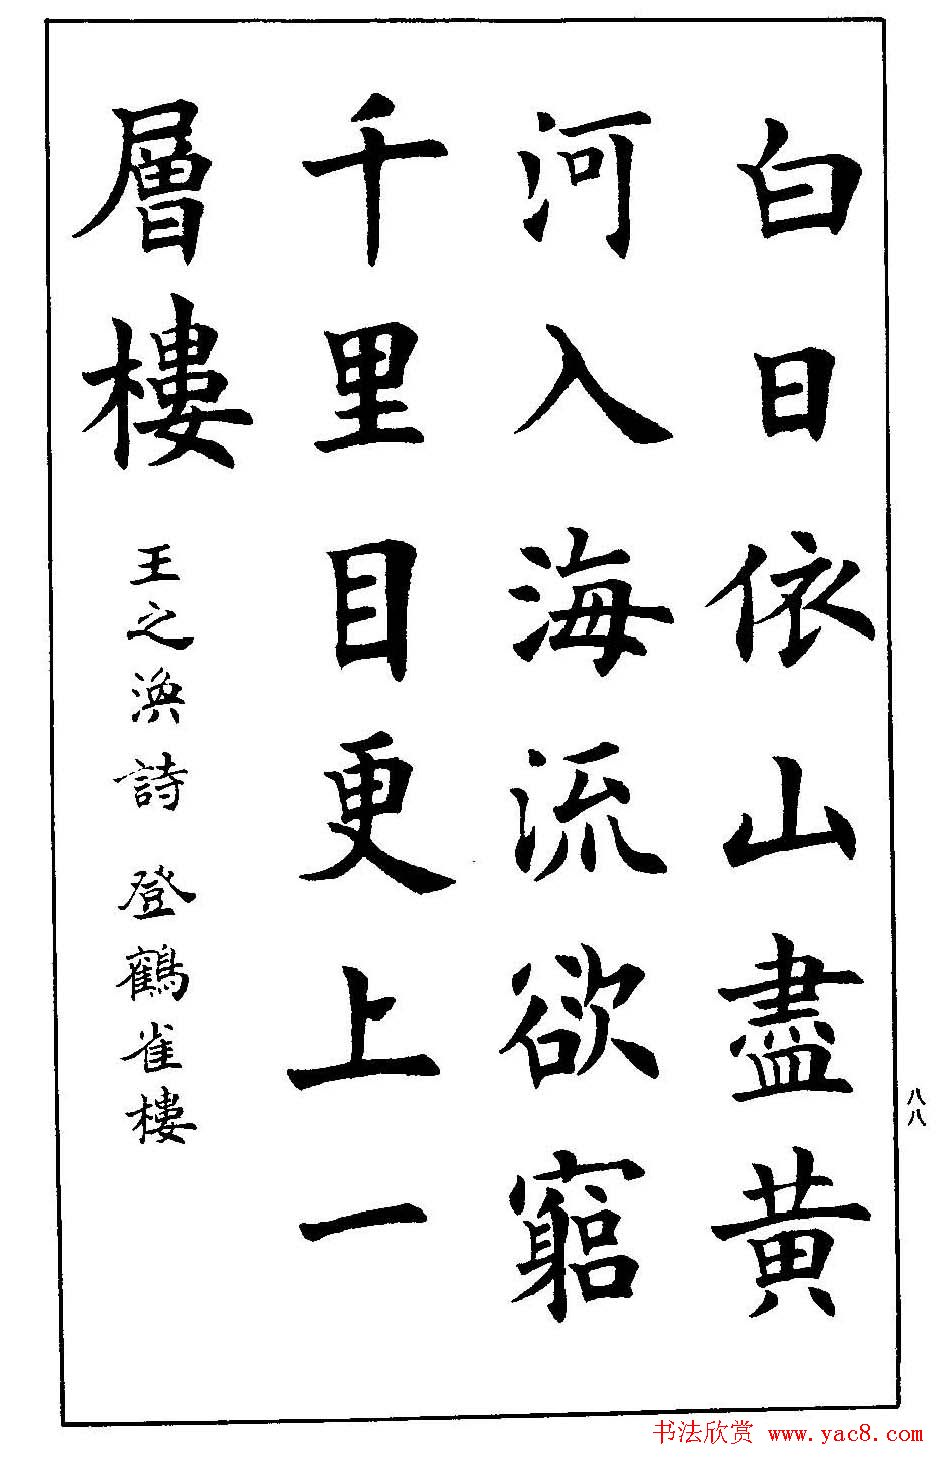 白日依山盡黃
河入海流欲窮
千里目更上一
層樓
王之渙詩 登鶴雀樓
八八
书法欣赏 www.yac8.com